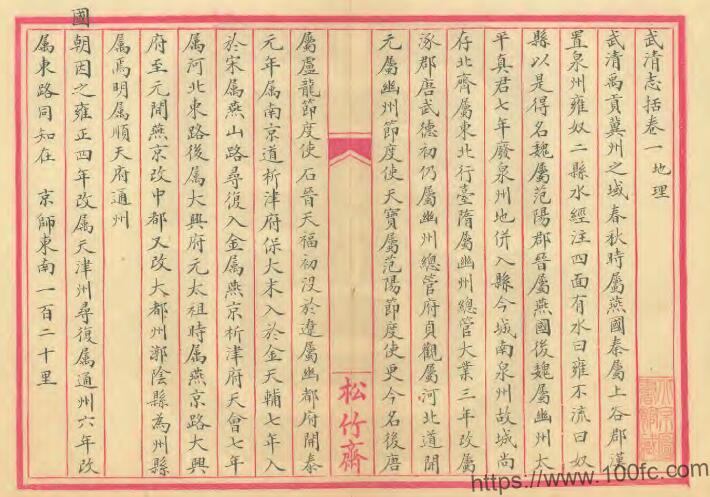 武清志括卷一 地理
武清禹貢冀州之域春秋時屬燕國秦屬上谷郡漢
置泉州雍奴二縣水經注四面有水曰雍不流曰奴
縣以是得名魏屬范陽郡晉屬燕國後魏屬幽州太
平真君七年廢泉州地併入縣今城南泉州故城尚
存北齊屬東北行臺隋屬幽州總管大業三年改屬
涿郡唐武德初仍屬幽州總管府貞觀屬河北道開
元屬幽州節度使天寶屬范陽節度使更今名後唐
松竹齋
屬盧龍節度使石晉天福初沒於遼屬幽都府開泰
元年属南京道析津府保大末入於金天輔七年入
於宋属燕山路尋復入金属燕京析津府天會七年
属河北東路後属大興府元太祖時属燕京路大興
府至元間燕京改中都又改大都州漷陰縣為州縣
属焉明属順天府通州
國朝因之雍正四年改属天津州尋復属通州六年改
属東路同知在 京師東南一百二十里
https://www.100fc.com